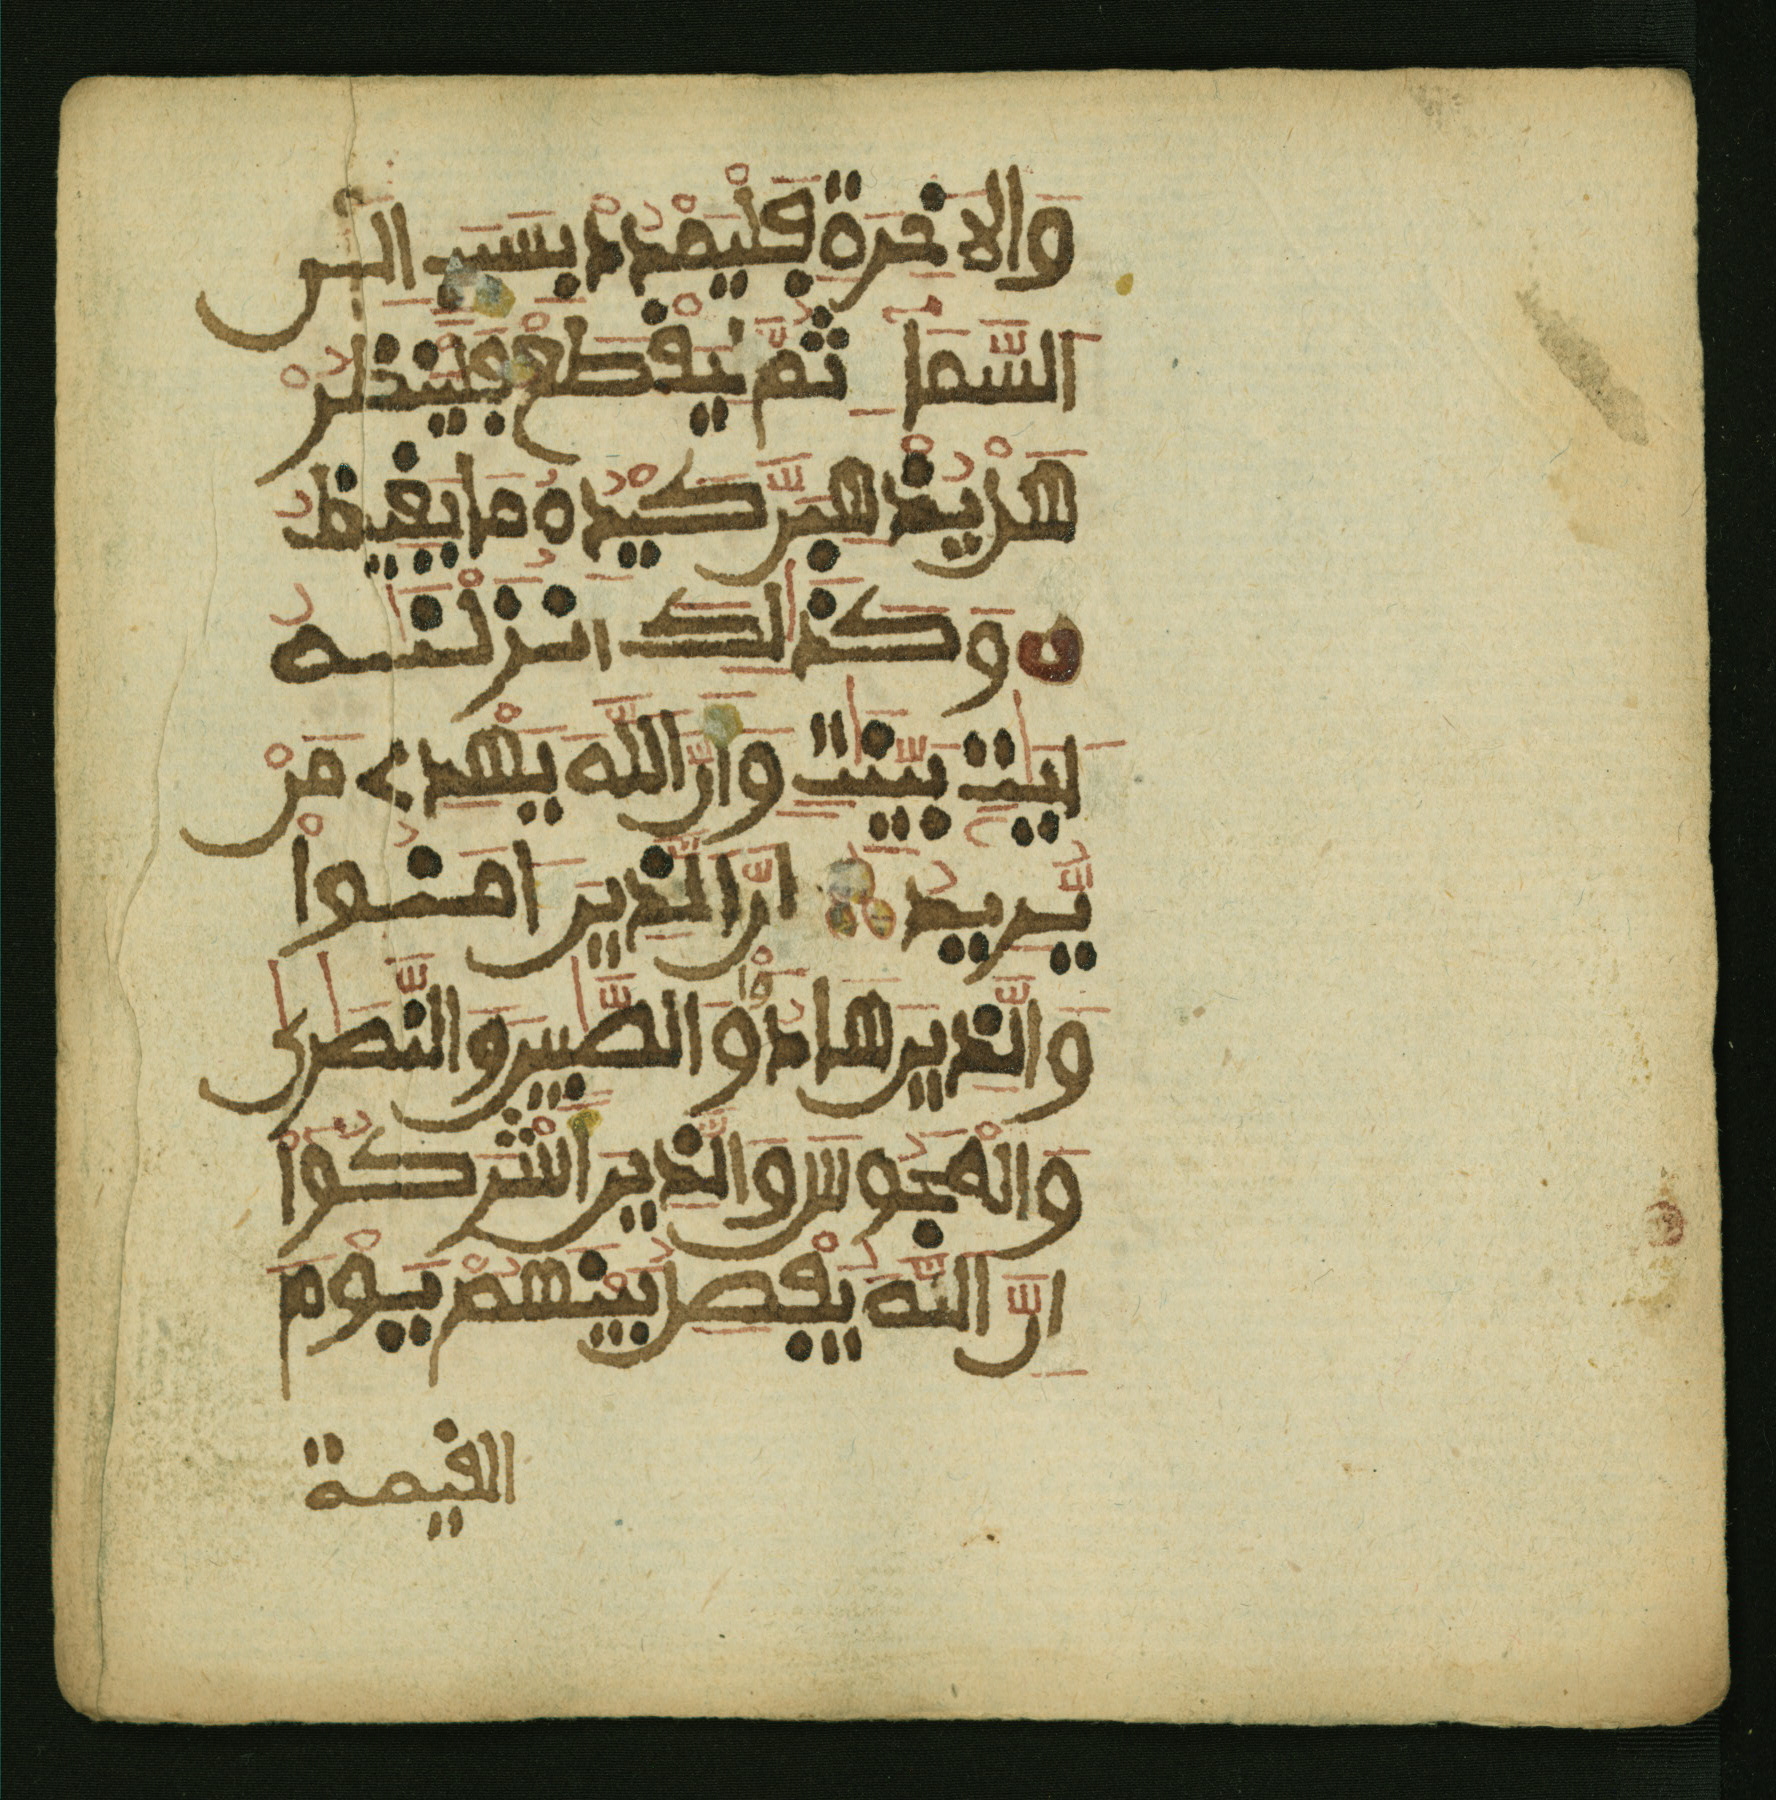 وَالاَخِرَةِ فَلْيَمْدُدْ بِسَبَبٍ الىَ
السَّمَآءِ ثُمَّ لْيَقْطَعْ فَلْيَنظُرْ
هَلْ يُذْهِبَنَّ كَيْدُهُ مَا يَغِيظُ
وَكَذَٰلِكَ انزَلْنَٰهُ
ءَايَٰتٍۢ بَيِّنَٰتٍ وَأَنَّ اللَّهَ يَهْدِے مَنْ
يُّرِيدُ إِنَّ الَّذِينَ ءَامَنُواْ
وَالَّذِينَ هَادُواْ وَالصَّٰبِينَ وَالنَّصَٰرَىٰ
وَالْمَجُوسَ وَالَّذِينَ أَشْرَكُواْ
إِنَّ اللَّهَ يَفْصِلُ بَيْنَهُمْ يَوْمَ
القيمة